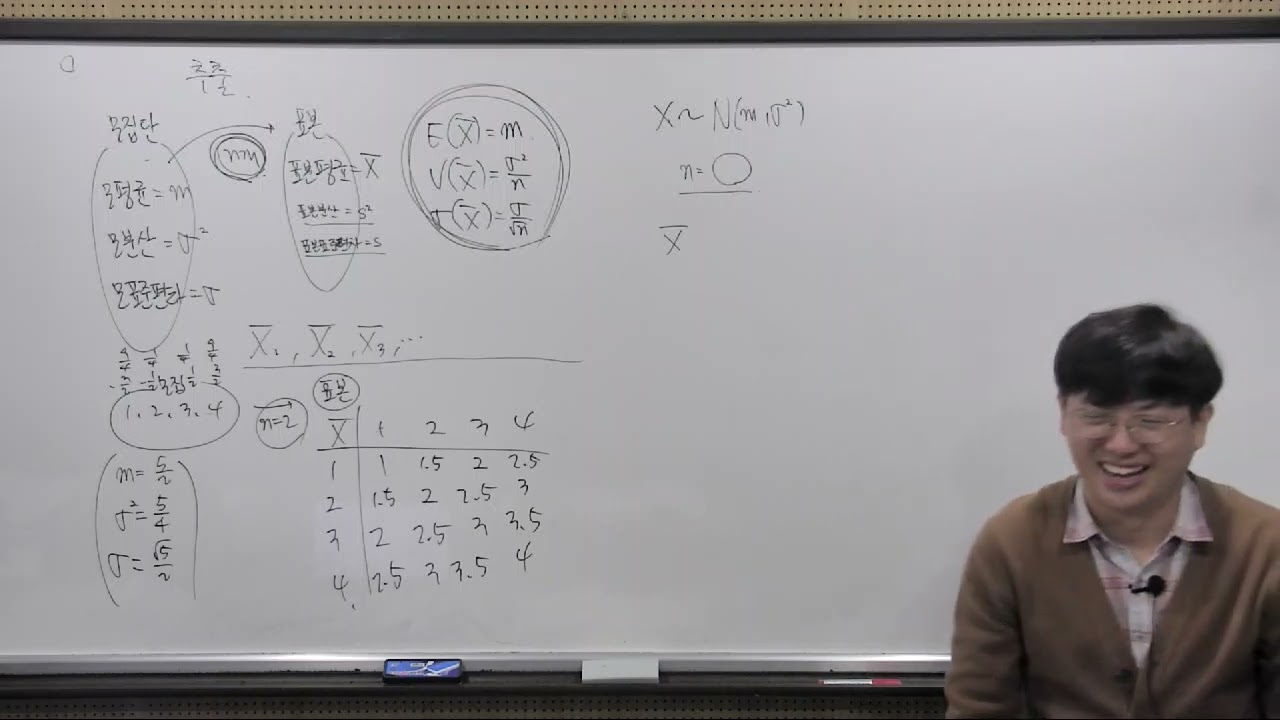 추출
모집단
모평균 = m
모분산 = σ²
모표준편차 = σ
표본
표본평균 = X̄
표본분산 = S²
표본표준편차 = S
E(X̄) = m
V(X̄) = σ²/n
σ(X̄) = σ/√n
X̄₁, X̄₂, X̄₃, ...
모집
1, 2, 3, 4
m = 5/2
σ² = 5/4
σ = √5/2
n=2
표본
X̄ 1 2 3 4
1 1 1.5 2 2.5
2 1.5 2 2.5 3
3 2 2.5 3 3.5
4 2.5 3 3.5 4
X ~ N(m, σ²)
n =
X̄